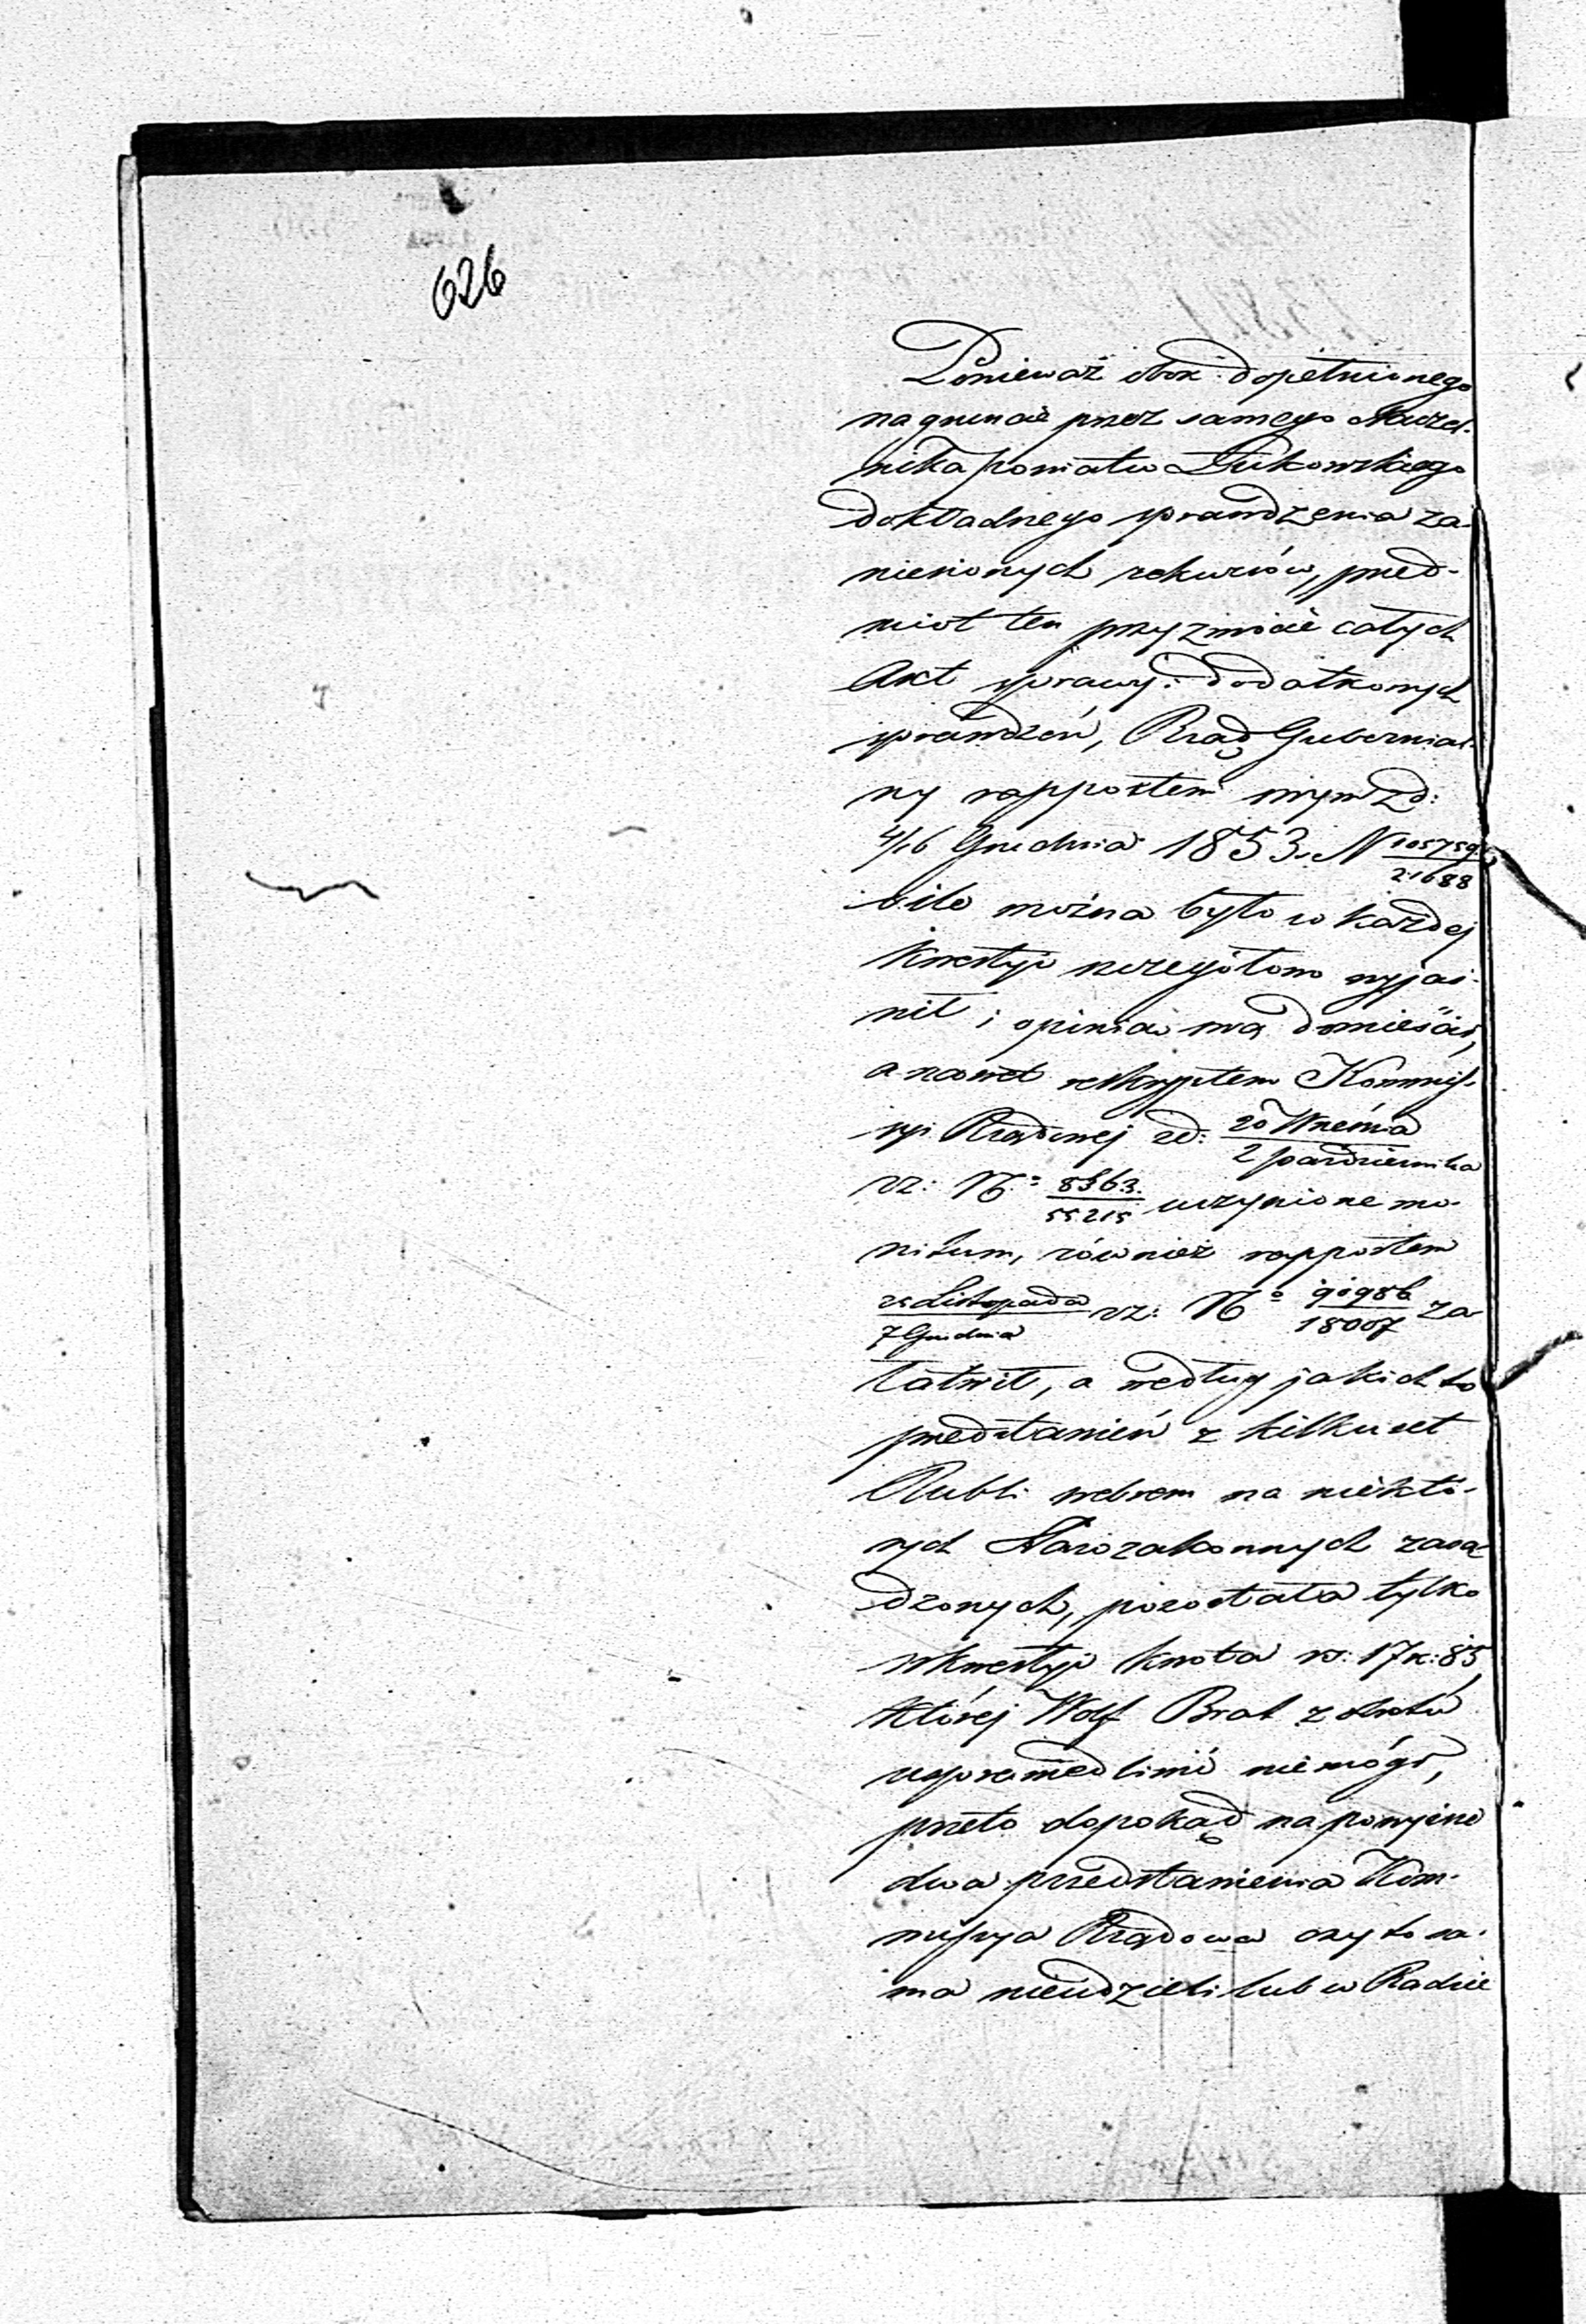 626
Ponieważ obok dopełnionego
na gruncie przez samego Naczel-
nika powiatu Łukowskiego
dokładnego sprawdzenia za-
niesionych rekursów, przed-
miot ten przy zwrocie całych
Akt sprawy i dodatkowych
sprawdzeń, Rząd Gubernial-
ny rapportem swym z d:
4/16 Grudnia 1853 r. N 105759/21688
o ile można było w każdej
kwestyi szczegółowo wyjaś-
nił i opinią swą zamieścił,
a nawet reskryptem Kommis-
syi Rządowej z d: 20 Września/2 października
r z: No 8363/55215 uczynione mo-
nitum, również rapportem
25 Listopada/7 Grudnia r z: No 90986/18007 za
łatwił, a według jakich to
przedstawień z kilkuset
Rubli srebrem na niektó-
rych Starozakonnych zasą-
dzonych, pozostała tylko
w kwestyi kwota rs: 17 k: 85
której Wolf Brat z obrotu
usprawiedliwić nie mógł,
przeto dopokąd na powyższe
dwa przedstawienia Kom-
missya Rządowa czy to sa-
ma nieudzieli lub w Radzie